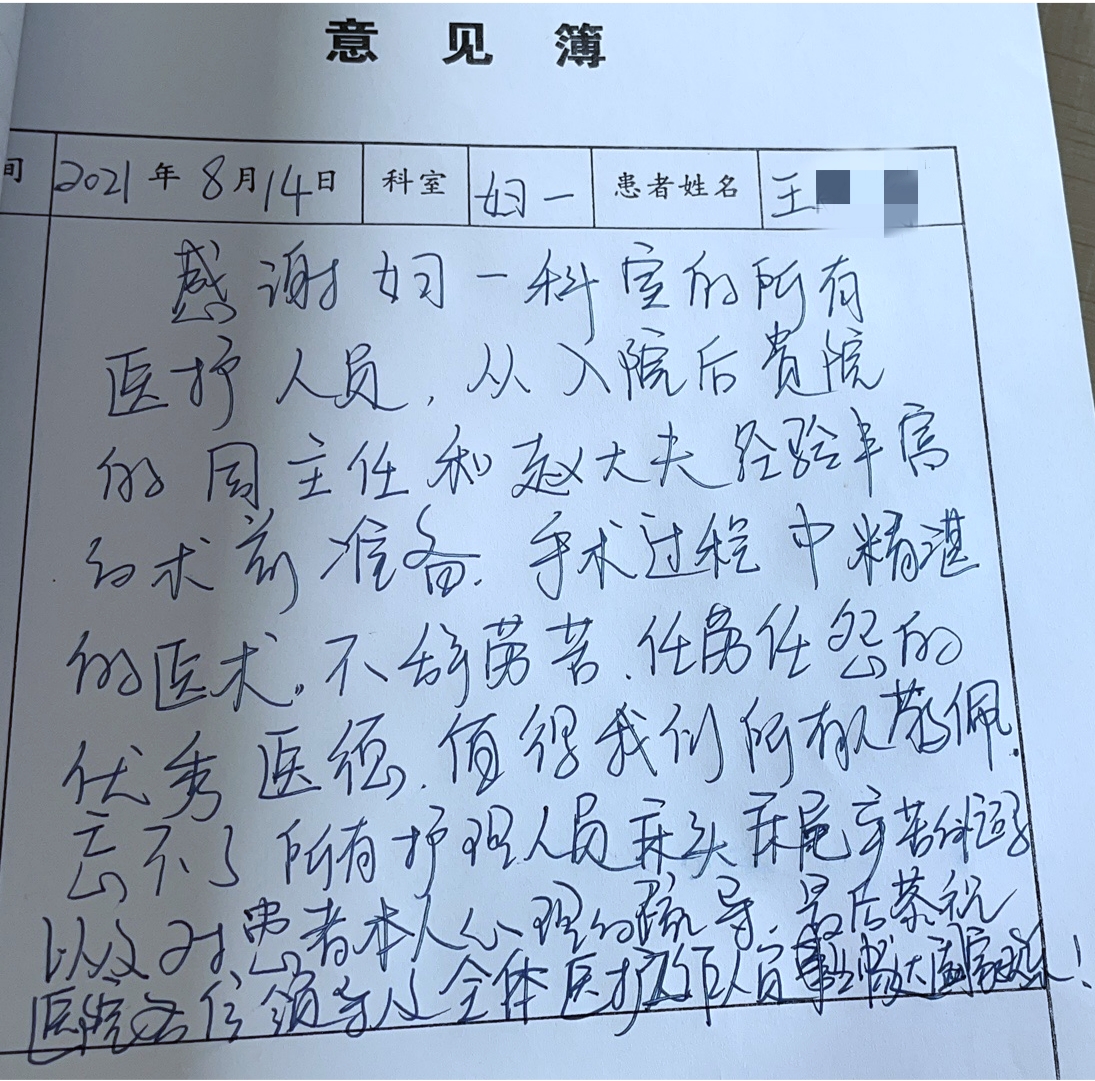 意见簿
间 2021年8月14日 科室 妇一 患者姓名 王
感谢妇一科室的所有
医护人员，从入院后贵院
的周主任和赵大夫经验丰富
的术前准备，手术过程中精湛
的医术。不辞劳苦、任劳任怨的
优秀医德，值得我们所有人敬佩。
忘不了所有护理人员床头床尾辛苦
以及对患者本人心理的疏导，最后恭祝
医院各位领导及全体医护人员